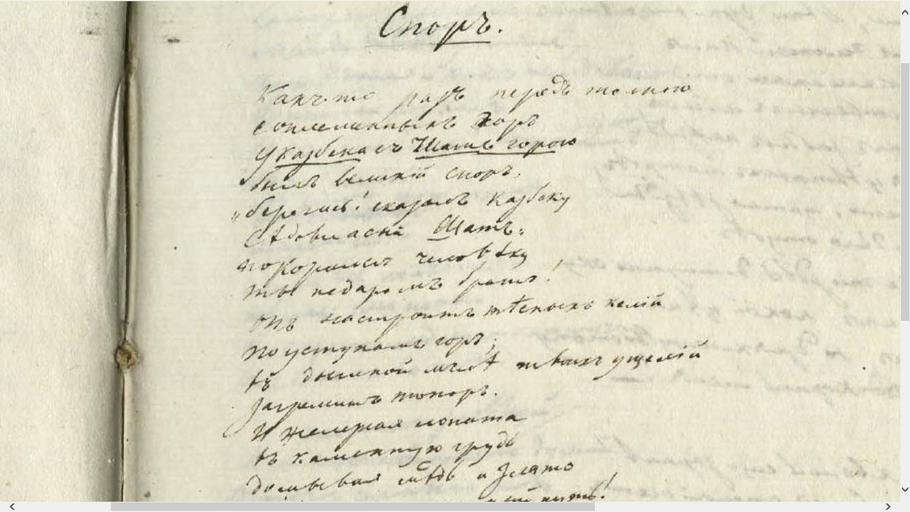 Споръ.
Какъ-то разъ передъ толпою
Соплеменныхъ горъ
У Казбека съ Шатъ горою
былъ великій споръ.
„берегись! сказалъ Казбеку
Сѣдовласый Шатъ:
покорился человѣку
ты недаромъ братъ!
Онъ настроитъ тѣсныхъ келій
По уступамъ горъ;
въ дымной мглѣ твоихъ ущелій
Загремитъ топоръ.
И желѣзная лопата
въ каменную грудь
добывая мѣдь и злато
путь!